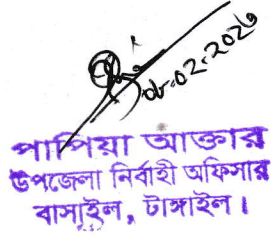 ০৮.০২.২০২৬
পাপিয়া আক্তার
উপজেলা নির্বাহী অফিসার
বাসাইল, টাঙ্গাইল।